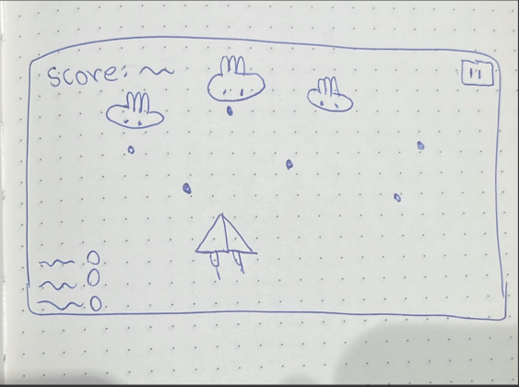 score:
0
0
0